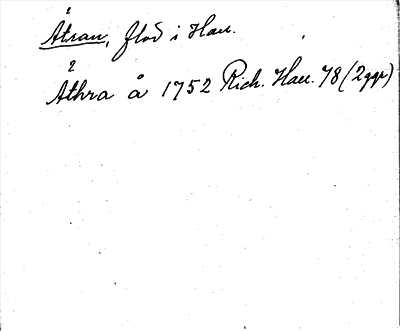 Ätran, flod i Hall.
Åthra å 1752 Rich. Hall. 78 (2 ggr)